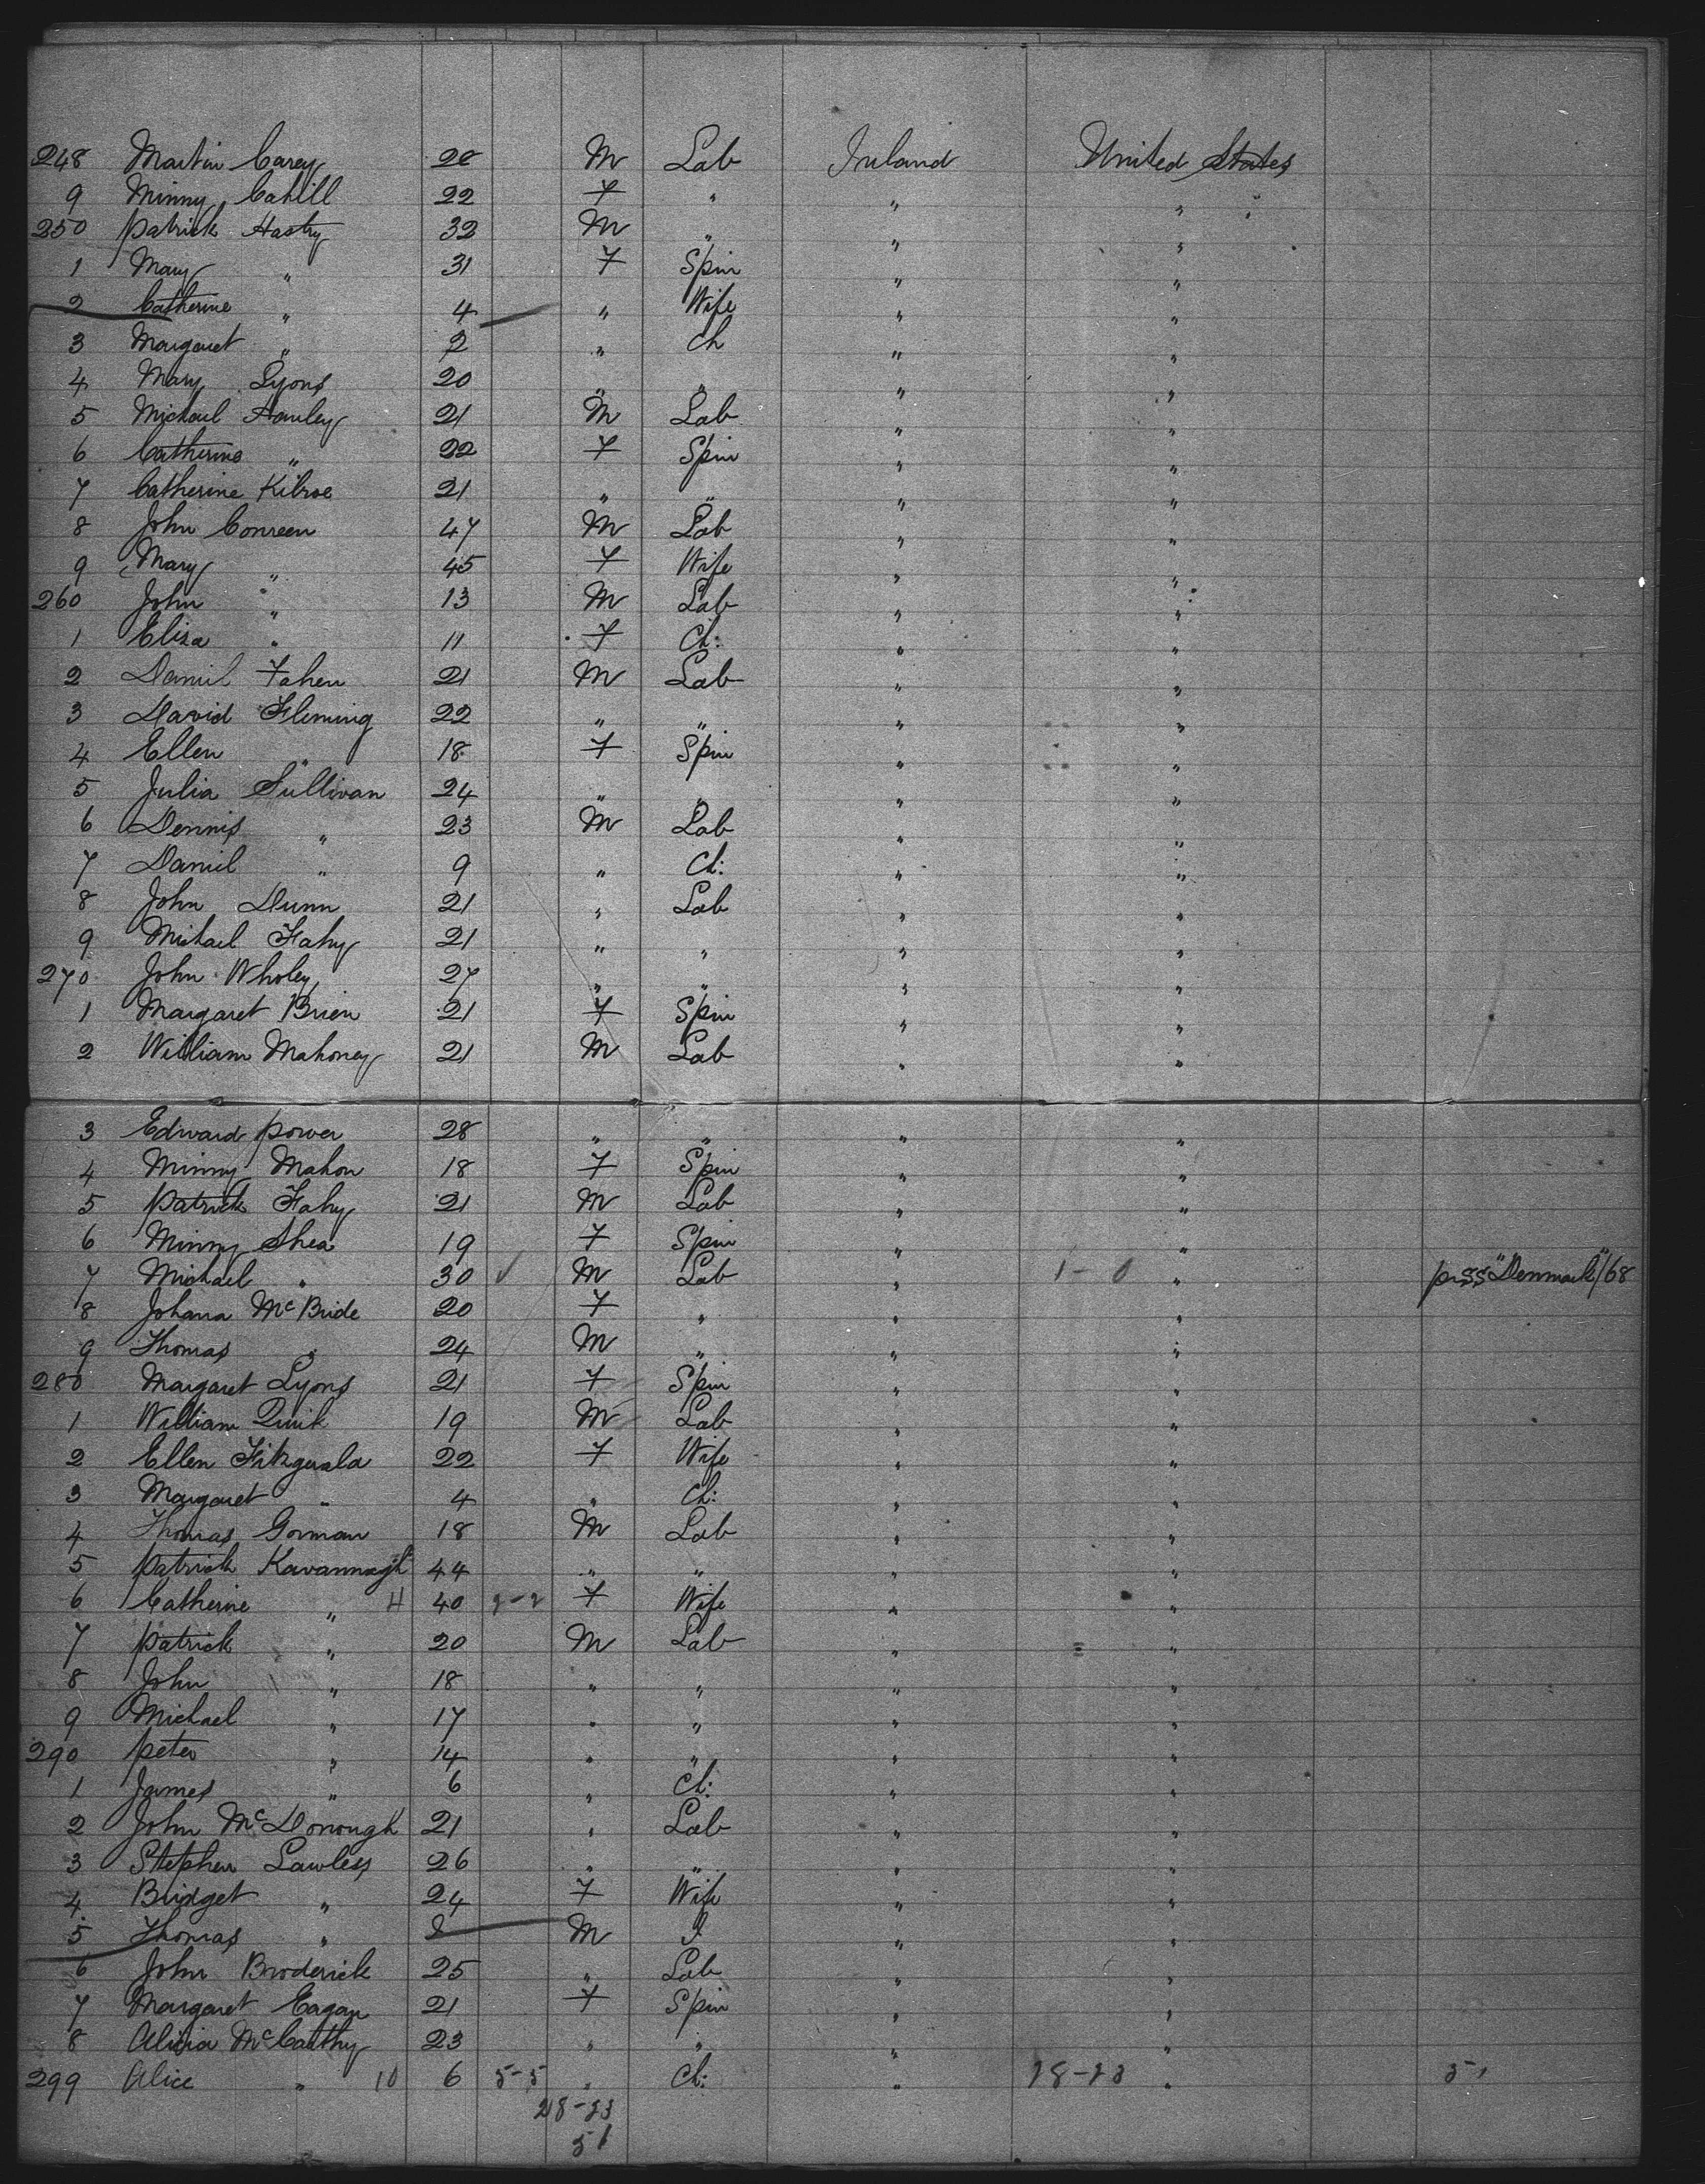 248 Martin Carey 28 M Lab Ireland United States
9 Minny Cahill 22 F " " "
250 Patrick Hastry 32 M " " "
1 Mary " 31 F Spin " "
2 Catherine " 4 " Wife " "
3 Margaret " 2 " Ch " "
4 Mary Lyons 20 " " " "
5 Michael Hawley 21 M Lab " "
6 Catherine " 22 F Spin " "
7 Catherine Kilroe 21 " " " "
8 John Conreen 47 M Lab " "
9 Mary " 45 F Wife " "
260 John " 13 M Lab " "
1 Eliza " 11 F Ch: " "
2 Daniel Fahen 21 M Lab " "
3 David Fleming 22 " " " "
4 Ellen " 18 F Spin " "
5 Julia Sullivan 24 " " " "
6 Dennis " 23 M Lab " "
7 Daniel " 9 " Ch: " "
8 John Dunn 21 " Lab " "
9 Michael Fahy 21 " " " "
270 John Wholey 27 " " " "
1 Margaret Brien 21 F Spin " "
2 William Mahoney 21 M Lab " "
3 Edward Power 28 " " " "
4 Minny Mahon 18 F Spin " "
5 Patrick Fahy 21 M Lab " "
6 Minny Shea 19 F Spin " "
7 Michael " 30 √ M Lab " 1-0 " pr SS "Denmark"/68
8 Johana McBride 20 F " " "
9 Thomas " 24 M " " "
280 Margaret Lyons 21 F Spin " "
1 William Quik 19 M Lab " "
2 Ellen Fitzgerald 22 F Wife " "
3 Margaret " 4 " Ch: " "
4 Thomas Gorman 18 M Lab " "
5 Patrick Kavannagh 44 " " " "
6 Catherine " 4 40 2-2 F Wife " "
7 Patrick " 20 M Lab " "
8 John " 18 " " " "
9 Michael " 17 " " " "
290 Peter " 14 " " " "
1 James " 6 " Ch: " "
2 John McDonough 21 " Lab " "
3 Stephen Lawless 26 " " " "
4 Bridget " 24 F Wife " "
5 Thomas " M I " "
6 John Broderick 25 " Lab " "
7 Margaret Eagan 21 F Spin " "
8 Alicia McCarthy 23 " " " "
299 Alice " 10 6 5-5 " Ch: " 28-23 " 51
28-23
51